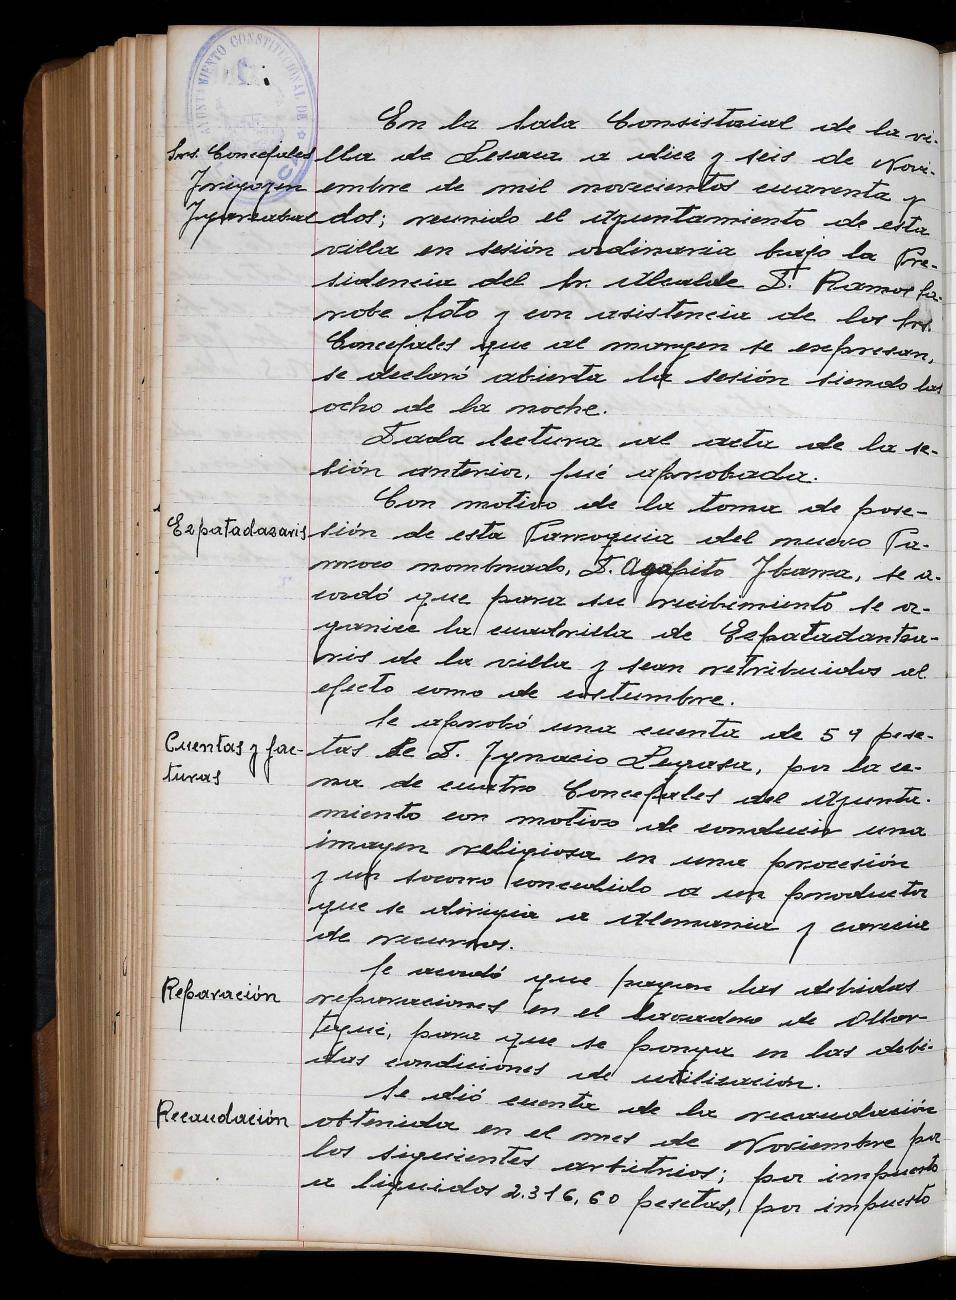 AYUNTAMIENTO CONSTITUCIONAL DE
En la Sala Consistorial de la vi-
Srs. Concejales
lla de Lesaca a diez y seis de Novi-
Irigoyen
embre de mil novecientos cuarenta y
dos; reunido el Ayuntamiento de esta
villa en sesión ordinaria bajo la Pre-
sidencia del Sr. Alcalde D. Ramos Ja-
robe Soto y con asistencia de los Srs.
Concejales que al margen se expresan,
se declaró abierta la sesión siendo las
ocho de la noche.
Dada lectura al acta de la se-
sión anterior, fué aprobada.
Con motivo de la toma de pose-
Ezpatadazaris
sión de esta Parroquia del nuevo Pa-
rroco nombrado, D. Agapito Ibarra, se a-
cordó que para su recibimiento se or-
ganice la cuadrilla de Ezpatadantza-
ris de la villa y sean retribuidos al
efecto como de costumbre.
Se aprobó una cuenta de 59 pese-
Cuentas y fac-
turas
tas de D. Ignacio Legasa, por la ce-
na de cuatro Concejales del Ayunta-
miento con motivo de conducir una
imagen religiosa en una procesión
y un socorro concedido a un productor
que se dirigia a Alemania y carecia
de recursos.
Se acordó que hagan las debidas
Reparación
reparaciones en el lavadero de
tegui, para que se ponga en las debi-
das condiciones de utilización.
Se dió cuenta de la recaudación
Recaudación
obtenida en el mes de Noviembre por
los siguientes arbitrios; por impuesto
a liquidos 2.316,60 pesetas, por impuesto